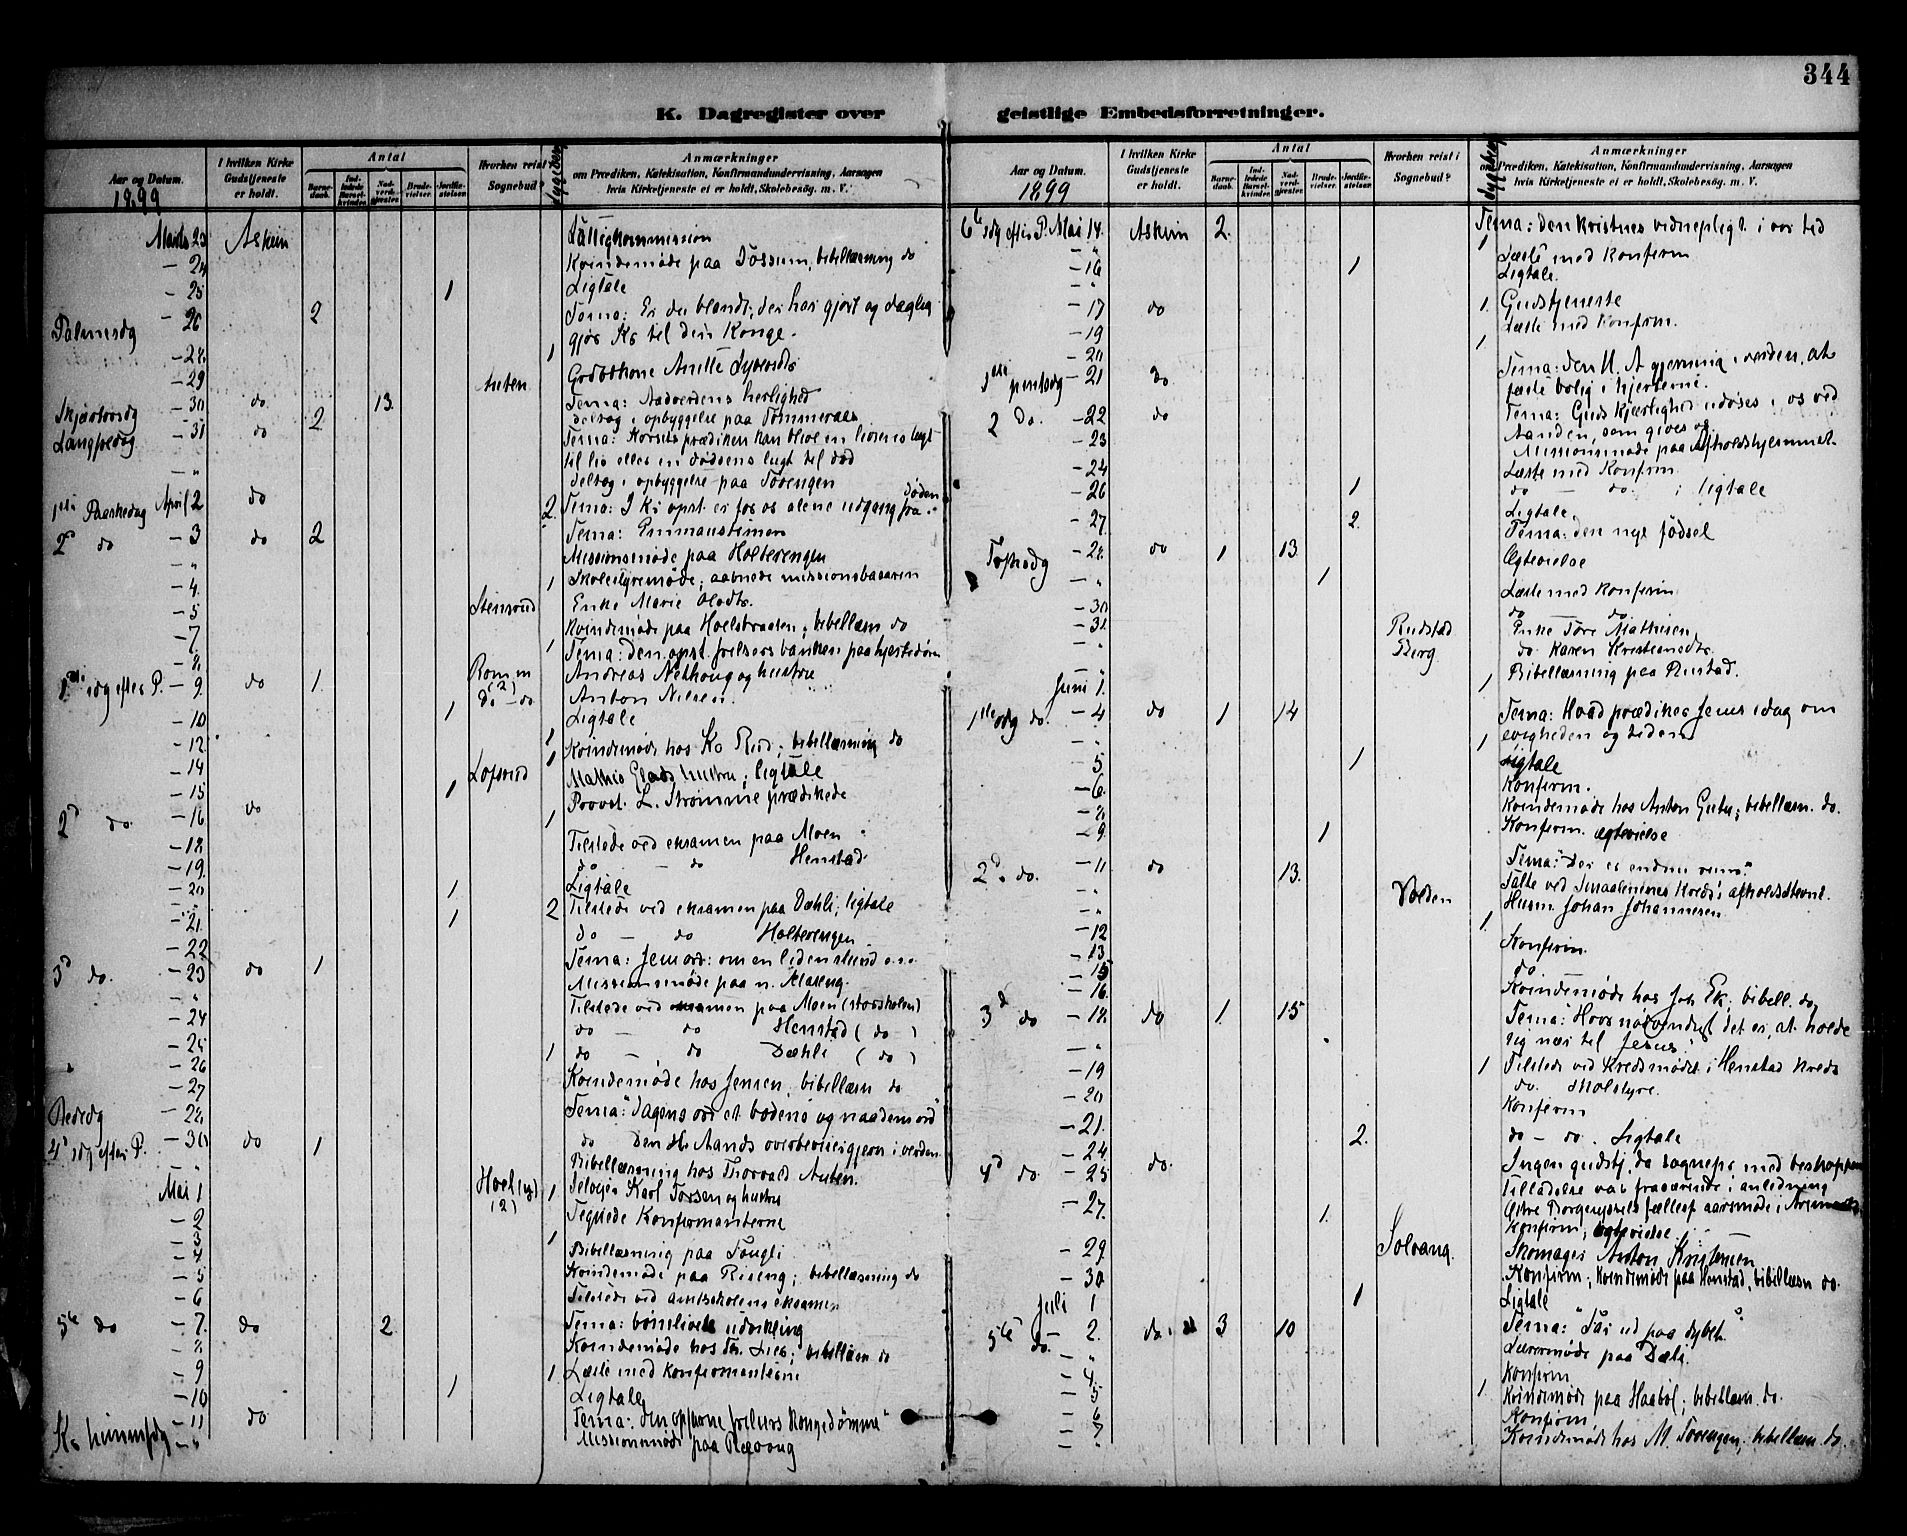 344
K. Dagregister over geistlige Embedsforretninger.
Aar og Datum.
1899
I hvilken Kirke Gudstjeneste er holdt.
Antal
Barnedaab.
Indledede Barselkvinder.
Nadverdgjester.
Brudevielser.
Jordfæstelser.
Hvorhen reist i Sognebud?
Sygebesøg
Anmærkninger
om Prædiken, Katekisation, Konfirmandundervisning, Aarsagen
hvis Kirketjeneste ei er holdt, Skolebesøg. m. V.
Marts 23 Askim Fattigkommission
— 24 Kvindemøde paa Fossum, bibellæsning do
— 25 1 Ligtale
Palmesdg — 26 2 Tema: Er du blandt, der har gjort og daglig
gjør Ks til din Konge.
1
— 28
— 29 Auten Godtskone Anitte
Skjærtorsdg — 30 do 13 Tema: Nadverdens herlighed
2 deltog i opbyggelse paa Sommeraas
Langfredag — 31 do Tema: Korsets prædiken kan blive en livsens lugt
til liv eller en dødsens lugt til død
— " deltog i opbyggelse paa Tovengen
1ste Paaskedag April 2 do 2 Tema: I Ks opst. er for os alene udgang fra døden
2d do — 3 do 2 Tema: Emmaustimen
— " Missionsmøde paa Holterengen
— 4 1 Skolestyremøde; aabnede missionsbasaren
— 5 Stensrud Enke Marie Olsdtr.
— 7 Kvindemøde paa Hoelsbraaten; bibellæsn do
— 8 1
1ste sdg efter P. — 9 do 1 Romm (2) Tema: den opst. frelsers banken paa hjertedøren
Andreas Nethoug og hustru
do - do Anton Nilsen.
— 10 1 Ligtale
— 12 1 Kvindemøde hos Ks Rud; bibellæsning do
— 14 1 Lofsrud Mathis hustru; ligtale
— 15 1
2d do — 16 do 1 Provst. L. Strømme prædikede
— 18 Tilstede ved eksamen paa Moen
— 19 do — do Henstad
— 20 1 Ligtale
— 21 1 2 Tilstede ved eksamen paa Dæhli; ligtale
— 22 do — do Holterengen
3d do. — 23 do 1 Tema: Jesu ord: om en liden stund o.s.v.
— " Missionsmøde paa n. Maseng.
— 24 Tilstede ved eksamen paa Moen (storskolen)
— 25 do — do Henstad (do)
— 26 1 do — do Dæhli (do)
— 27 Kvindemøde hos Jensen, bibellæsn do
Bededg — 28 Tema: "Dagens ord et bodens og naadens ord"
4d sdg efter P. — 30 do 1 do Den H. Aands overbevisigjern i verden.
— " Bibellæsning hos Thorvald Auten.
Mai 1 Hoel (2) 1 Karl Torsen og hustru
— 2 Tegnede Konfirmanterne
— 3 1
— 4 Bibellæsning paa Fougli
— 5 Kvindemøde paa Riseng; bibellæsning do
— 6 Tilstede ved amtsskolens eksamen
5te do — 7 do 2 Tema: bønlivets udvikling
— 8 Kvindemøde hos Th. Lies; bibellæsn do
— 9 1 Læste med konfirmanterne
— 10 1 Ligtale
Ks himmfdg — 11 do Tema: den opfarne frelsers kongedømme"
— " Missionsmøde paa Ræsoug
Aar og Datum.
1899
I hvilken Kirke Gudstjeneste er holdt.
Antal
Barnedaab.
Indledede Barselkvinder.
Nadverdgjester.
Brudevielser.
Jordfæstelser.
Hvorhen reist i Sognebud?
Sygebesøg
Anmærkninger
om Prædiken, Katekisation, Konfirmandundervisning, Aarsagen
hvis Kirketjeneste ei er holdt, Skolebesøg. m. V.
6te sdg efter P. Mai 14 Askim 2 Tema: den kristnes vidnepligt i vor tid
— " 1 Læste med Konfirm
— 16 1 Ligtale.
— 17 do 1 Gudstjeneste
— 19 Læste med Konfirm.
— 20 1
1ste pintsdg — 21 do Tema: den H. A. gjerning i verden, at
fæste bolig i hjerterne.
2 do. — 22 do Tema: Guds kjærlighed udøses i os ved
Aanden, som gives os
— 23 Missionsmøde paa Afholdshjemmet.
— 24 Læste med Konfirm
— 26 1 do — do ; ligtale
— 27 2 Ligtale.
Trefsdg — 28 do 1 13 Tema: den nye fødsel
— " 1 Egtevielse
— 30 Læste med Konfirm
— 31 do do
— " Rudstad Enke Tore Mathisen
— " Berg do Karen Kristiansdtr.
Juni 1 1 Bibellæsning paa Rustad.
1ste sdg do. — 4 do 1 14 Tema: Hvad prædiker Jesus idag om
evigheden og tiden
— " 1
— 5 1 Ligtale
— 6 Konfirm.
— 8 Kvindemøde hos Anton Guter; bibellæsn. do.
— 9 1 Konfirm. egtevielse
2d do. — 11 do 13 Tema: "Der er endnu rum".
— " Talte ved Smaalenenes Kreds' afholdsstevne.
— " Volden Husm. Johan Johannesen
— 12 1
— 13 Konfirm.
— 15 do
— 16 Kvindemøde hos Joh Ek; bibell. do
3d do — 18 do 1 15 Tema: Hvor nødvendigt det er, at holde
sig nær til Jesus."
— 19 1 Tilstede ved Kredsmødet i Henstad Kreds
— 20 do. Skolstyre.
— 21 Konfirm
— 24 2 do — do. Ligtale
4d do — 25 do. Ingen gudstj. da sognepr. med beskoppens
tilladelse var fraværende i anledning
Østre Borgesyssels fællesf aarsmøde i
— 27 1 Konfirm; egtevielse.
— 29 Solvang. Skomager Anton Kristensen
— 30 Konfirm; kvindemøde paa Henstad, bibellæsn do.
Juli 1 1 Ligtale
5te do. — 2 do. 3 10 Tema: "Far ud paa dybet"
— " Lærermøde paa Dæli.
— 4 Konfirm
— 5 1 Kvindemøde paa Haabøl; bibellæsn do.
— 6 Konfirm.
— 7 Kvindemøde hos M. Tovengen; bibellæsn do.
— "